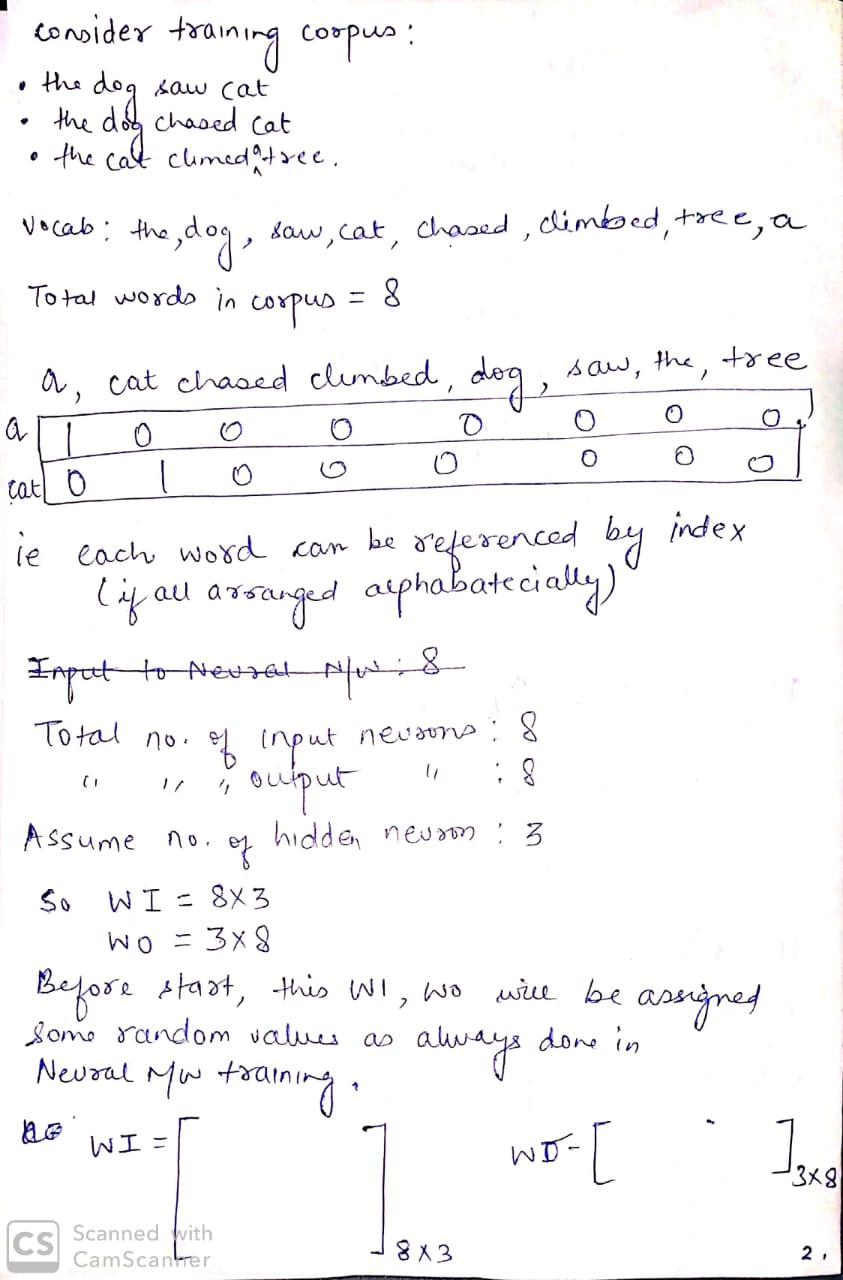 consider training corpus:
• the dog saw cat
• the dog chased cat
• the cat climed a tree.
Vocab: the, dog, saw, cat, chased, climbed, tree, a
Total words in corpus = 8
a, cat chased climbed, dog, saw, the, tree
a 1 0 0 0 0 0 0 0
cat 0 1 0 0 0 0 0 0
ie each word can be referenced by index
(if all arranged alphabatecially)
Input to Neural N/w : 8
Total no. of input neurons : 8
" " " output " : 8
Assume no. of hidden neuron : 3
So WI = 8X3
WO = 3X8
Before start, this WI, WO will be assigned
some random values as always done in
Neural N/w training.
WI = [ ] 8X3 WO = [ ] 3X8
CS Scanned with
CamScanner
2.